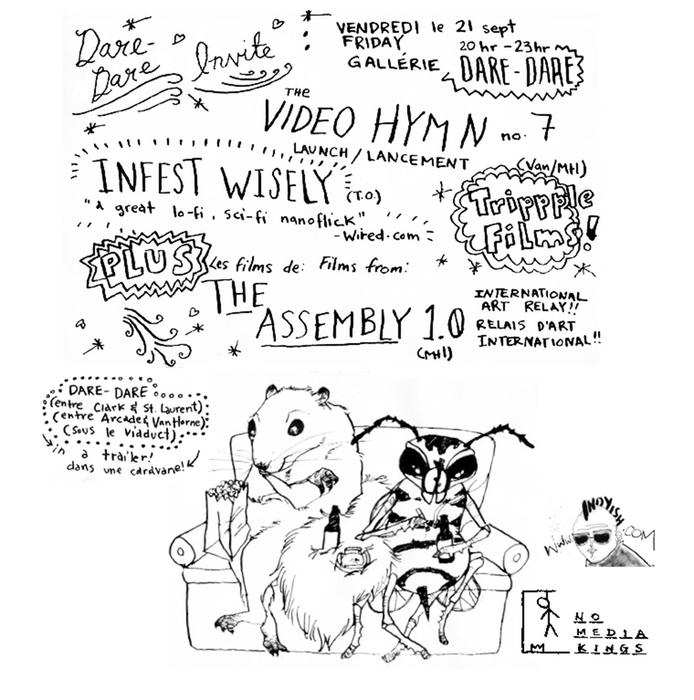 Dare-
Dare
Invite
VENDREDI le 21 sept
FRIDAY
20hr-23hr
GALLÉRIE DARE-DARE
THE
VIDEO HYMN no. 7
LAUNCH/LANCEMENT
INFEST WISELY (T.O.)
"a great lo-fi, sci-fi nanoflick"
-Wired.com
(Van/Mtl)
Trippple
Films!
PLUS
Les films de: Films from:
THE
ASSEMBLY 1.0
(Mtl)
INTERNATIONAL
ART RELAY!!
RELAIS D'ART
INTERNATIONAL!!
DARE-DARE
(entre Clark & St. Laurent)
(entre Arcade & Van Horne)
(sous le Viaduct)
in a trailer!
dans une caravane!
.COM
NO
MEDIA
KINGS